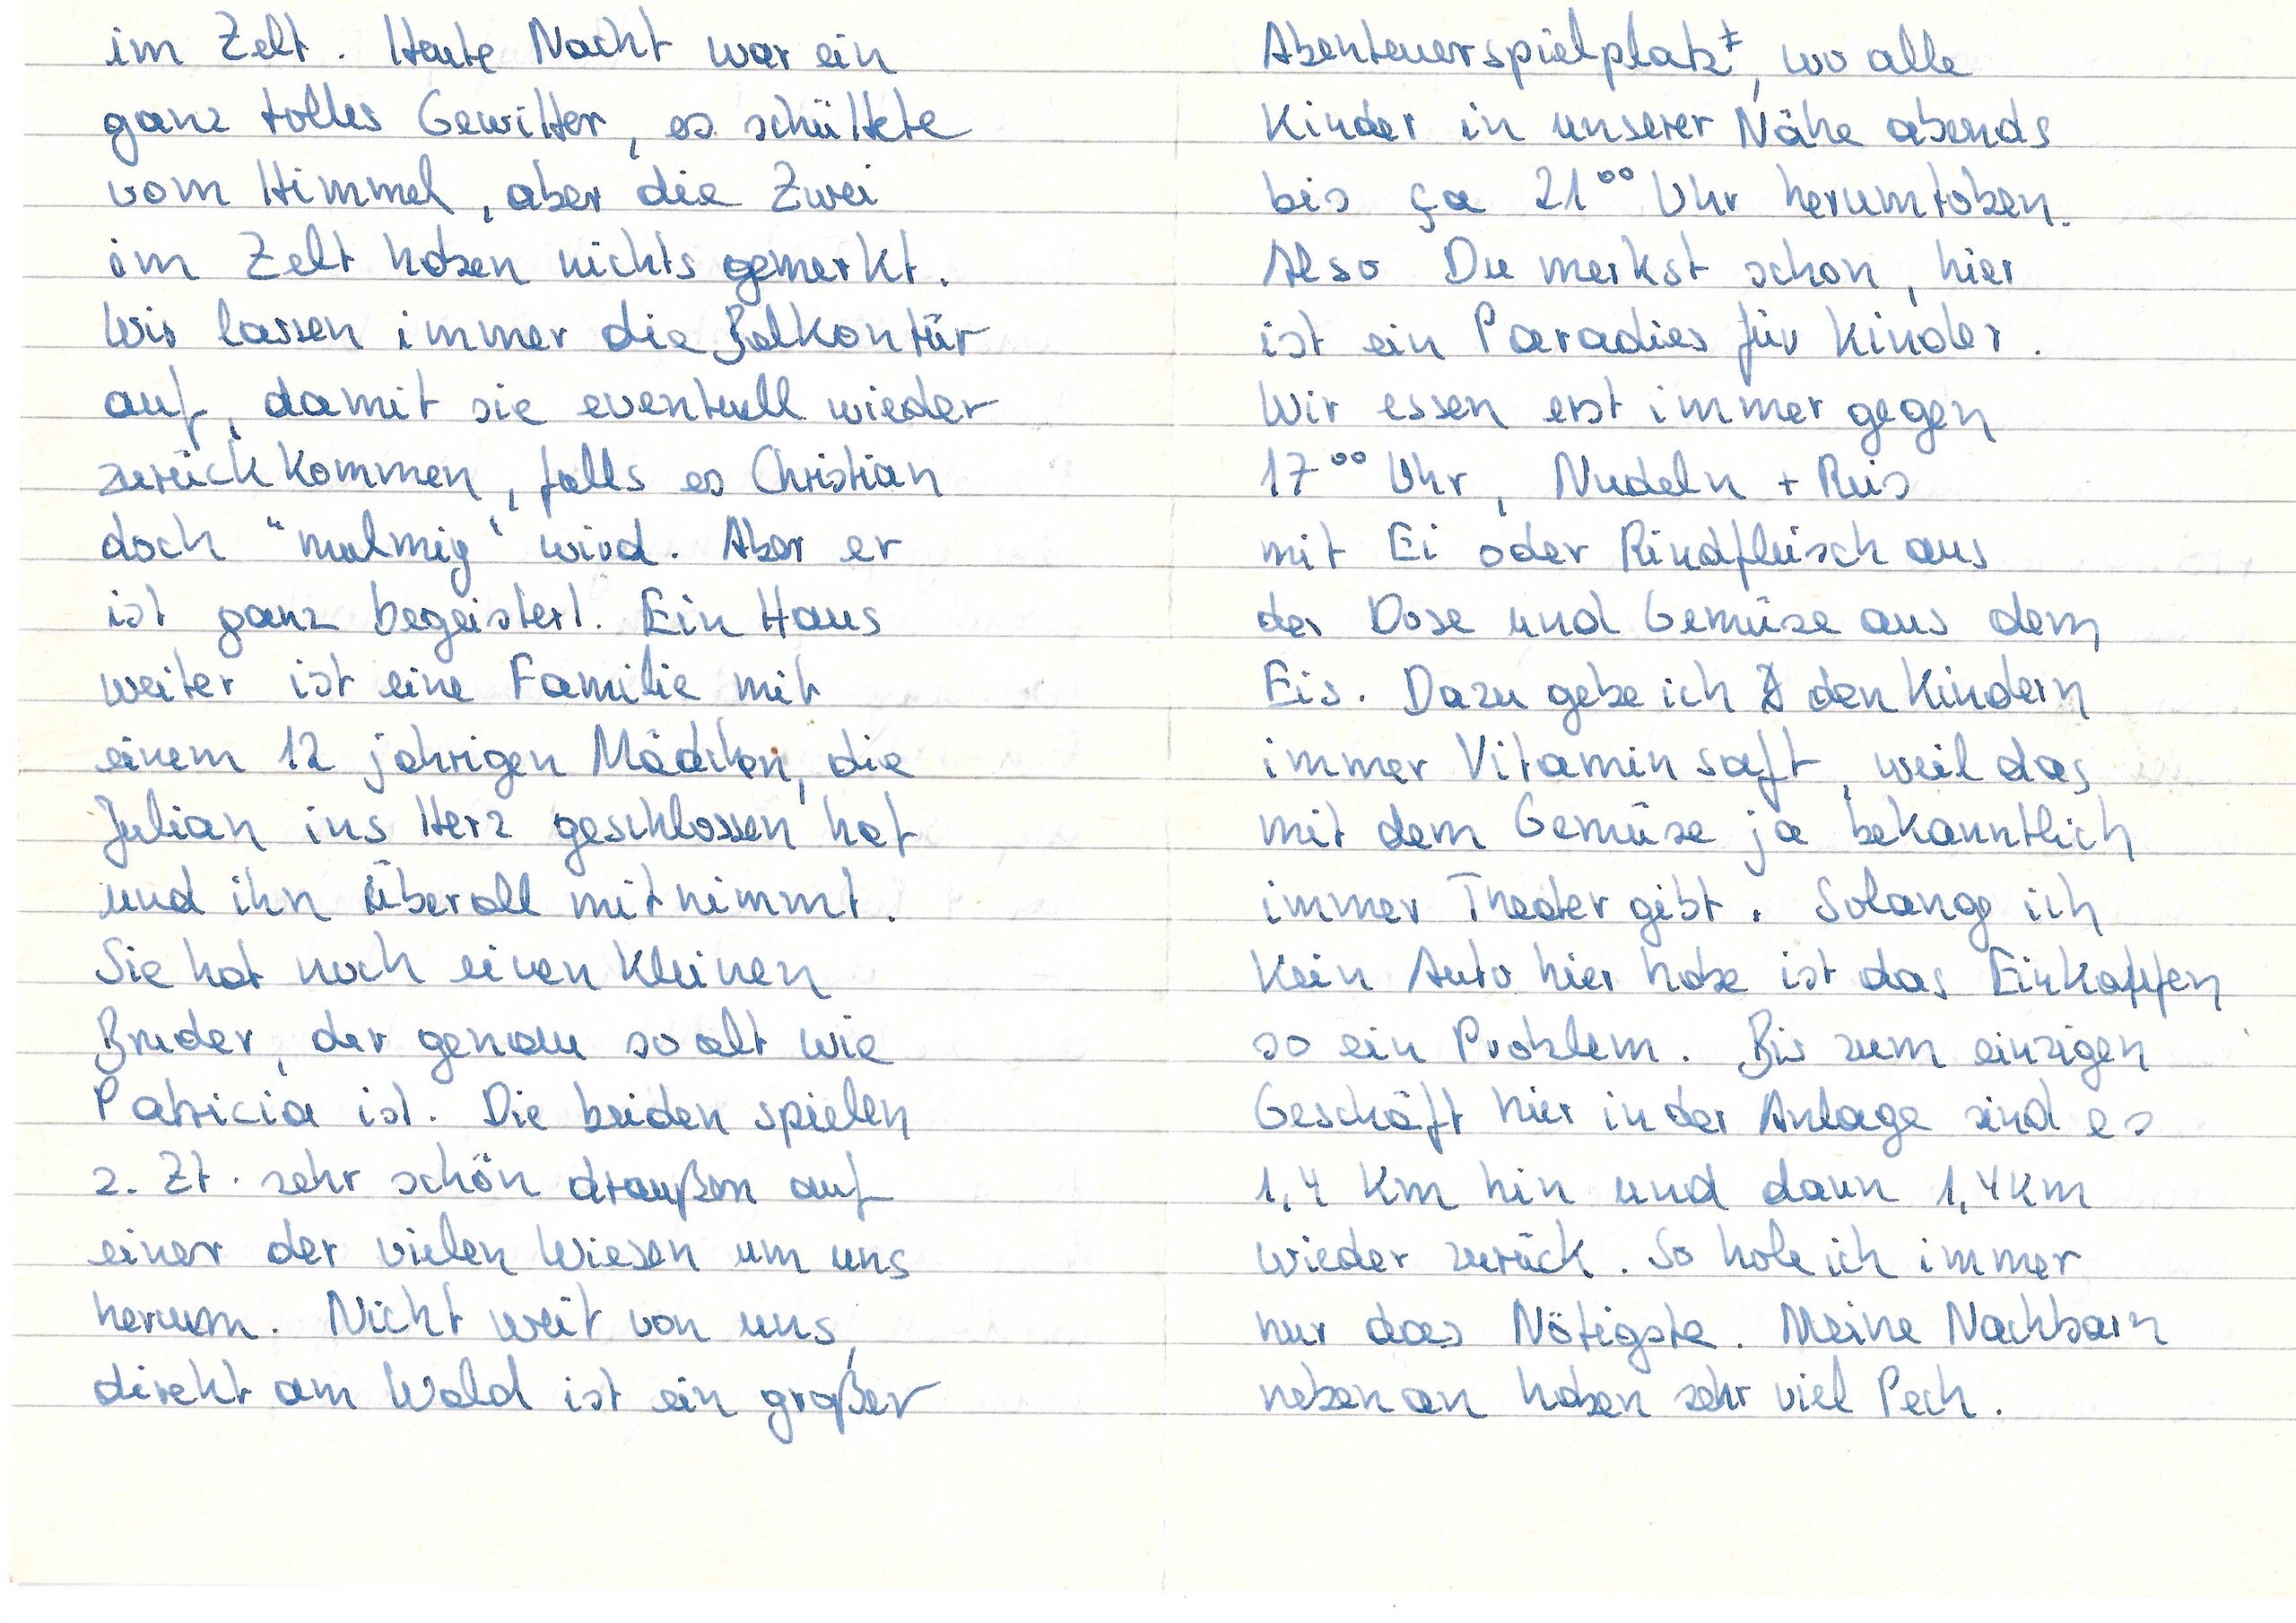 im Zelt. Heute Nacht war ein
ganz tolles Gewitter, es schüttete
vom Himmel, aber die Zwei
im Zelt haben nichts gemerkt.
Wir lassen immer die Balkontür
auf, damit sie eventuell wieder
zurückkommen, falls es Christian
doch "mulmig" wird. Aber er
ist ganz begeistert. Ein Haus
weiter ist eine Familie mit
einem 12 jährigen Mädchen, die
Julian ins Herz geschlossen hat
und ihn überall mitnimmt.
Sie hat noch einen kleinen
Bruder, der genau so alt wie
Patricia ist. Die beiden spielen
z. Zt. sehr schön draußen auf
einer der vielen Wiesen um uns
herum. Nicht weit von uns,
direkt am Wald ist ein großer
Abenteuerspielplatz, wo alle
Kinder in unserer Nähe abends
bis ça 21⁰⁰ Uhr herumtoben.
Also Du merkst schon, hier
ist ein Paradies für Kinder.
Wir essen erst immer gegen
17⁰⁰ Uhr, Nudeln + Reis
mit Ei oder Rindfleisch aus
der Dose und Gemüse aus dem
Eis. Dazu gebe ich den Kindern
immer Vitaminsaft, weil das
mit dem Gemüse ja bekanntlich
immer Theater gibt. Solange ich
kein Auto hier habe ist das Einkaufen
so ein Problem. Bis zum einzigen
Geschäft hier in der Anlage sind es
1,4 Km hin und dann 1,4 Km
wieder zurück. So hole ich immer
nur das Nötigste. Meine Nachbarn
nebenan haben sehr viel Pech.